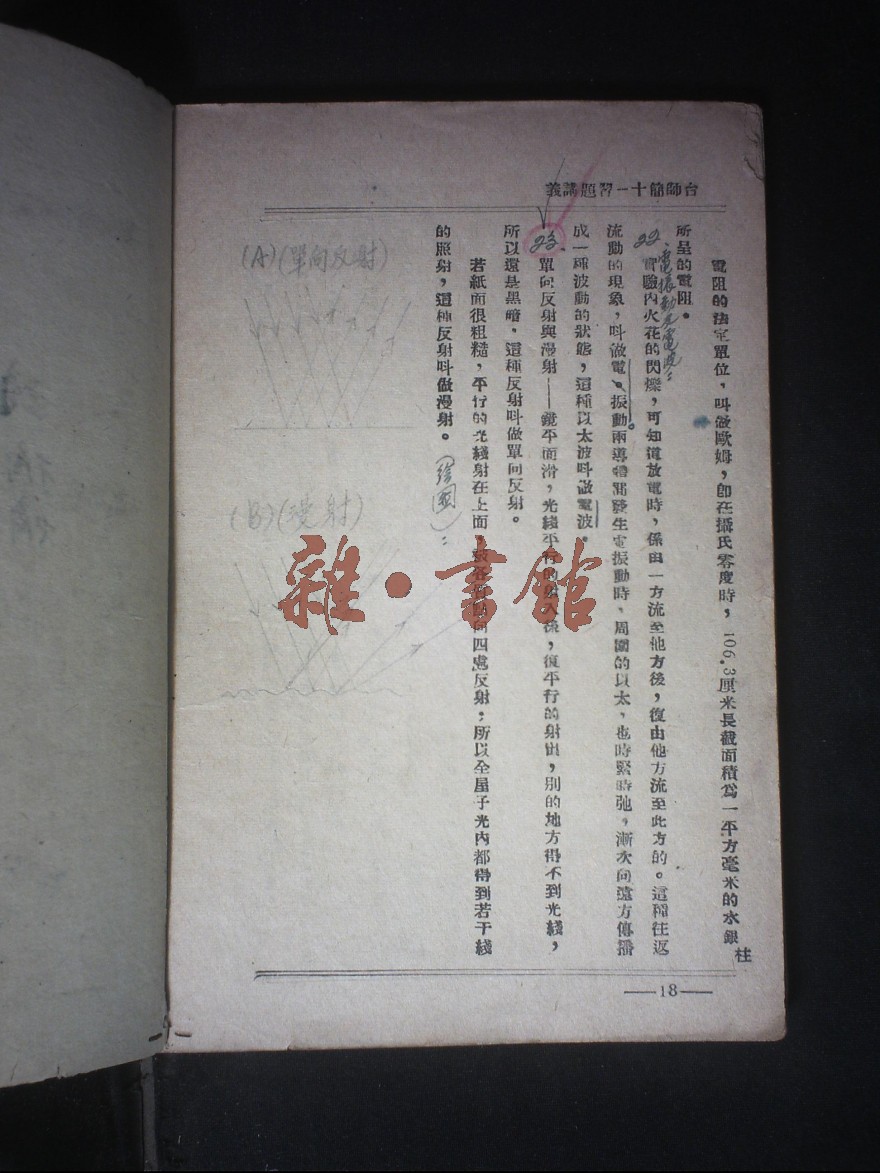 台師簡十一習題講義
電阻的法定單位，叫做歐姆，卽在攝氏零度時，106.3厘米長截面積爲一平方毫米的水銀柱
所呈的電阻。
22、電振動及電波：
實驗內火花的閃爍，可知道放電時，係由一方流至他方後，復由他方流至此方的。這種往返
流動的現象，叫做電振動。兩導體間發生電振動時、周圍的以太，也時緊時弛，漸次向遠方傳播
成一種波動的狀態，這種以太波叫做電波。
23、單向反射與漫射——鏡平面滑，光綫平行的射入後，復平行的射出，別的地方得不到光綫，
所以還是黑暗，這種反射叫做單向反射。
若紙面很粗糙，平行的光綫射在上面，向四處反射；所以全屋子光內都得到若干綫
的照射，這種反射叫做漫射。(繪圖)：
(A)(單向反射)
(B)(漫射)
雜·書館
—18—